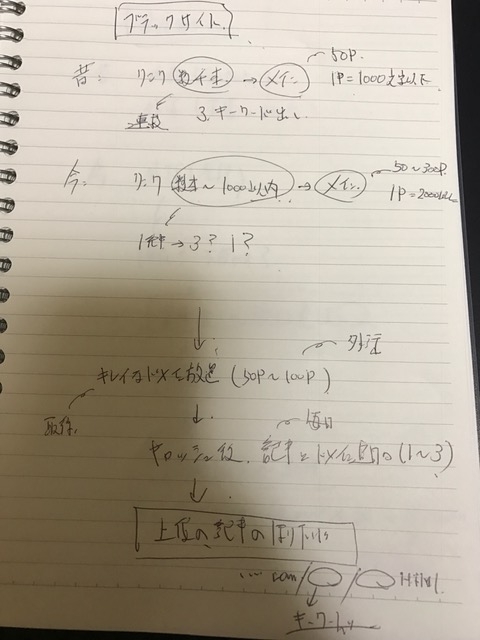 ブラックサイト
50P.
昔: リンク 数千本 → メイン
1P=1000文字以下
3. キーワード出し
今: リンク 数本～1000以内 → メイン
50～300P.
1P=2000以上
1記事 → 3? 1?
↓
外注
キレイなドメを放置 (50P～100P)
取得
↓
毎日
キャッシュ後、記事とドメに追加 (1～3)
↓
上位の記事のほり下げ
... com/ / html
キーワード